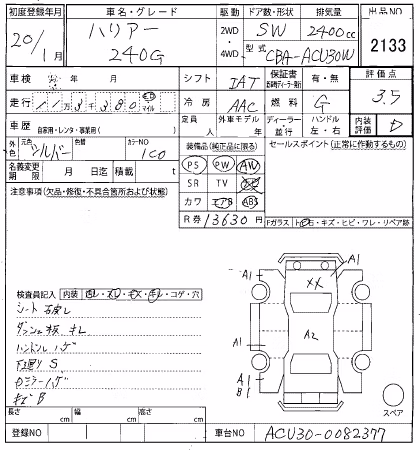 初度登録年月 車名・グレード 駆動 ドア数・形状 排気量 出品NO
20/1月 ハリアー 240G 2WD・4WD SW 2400cc 2133
型式 CBA-ACU30W
車検 年 月 シフト IAT 保証書 有・無 評価点
走行 11万3千380 km マイル 冷房 AAC 燃料 G 3.5
車歴 自家用・レンタ・事業用( ) 定員 人 外車モデル 年 ディーラー・並行 ハンドル 左・右 内装評価 D
外色 元色 シルバー 色替 カラーNO 1C0 装備品(純正品に限る) セールスポイント(正常に作動するもの)
PS PW AW
名義変更期限 月 日迄 積載 t SR TV
注意事項(欠品・修復・不具合箇所および状態) カワ エアB ABS
R券 13630円
Fガラス トビ石・キズ・ヒビ・ワレ・リペア跡
A1 XX A1
A1 A2 A1
A1
B1
検査員記入 内装 コゲ・穴
シート
ハンドルハゲ
下廻りS
キズB
スペア
長さ cm 幅 cm 高さ cm
登録NO 車台NO ACU30-0082377